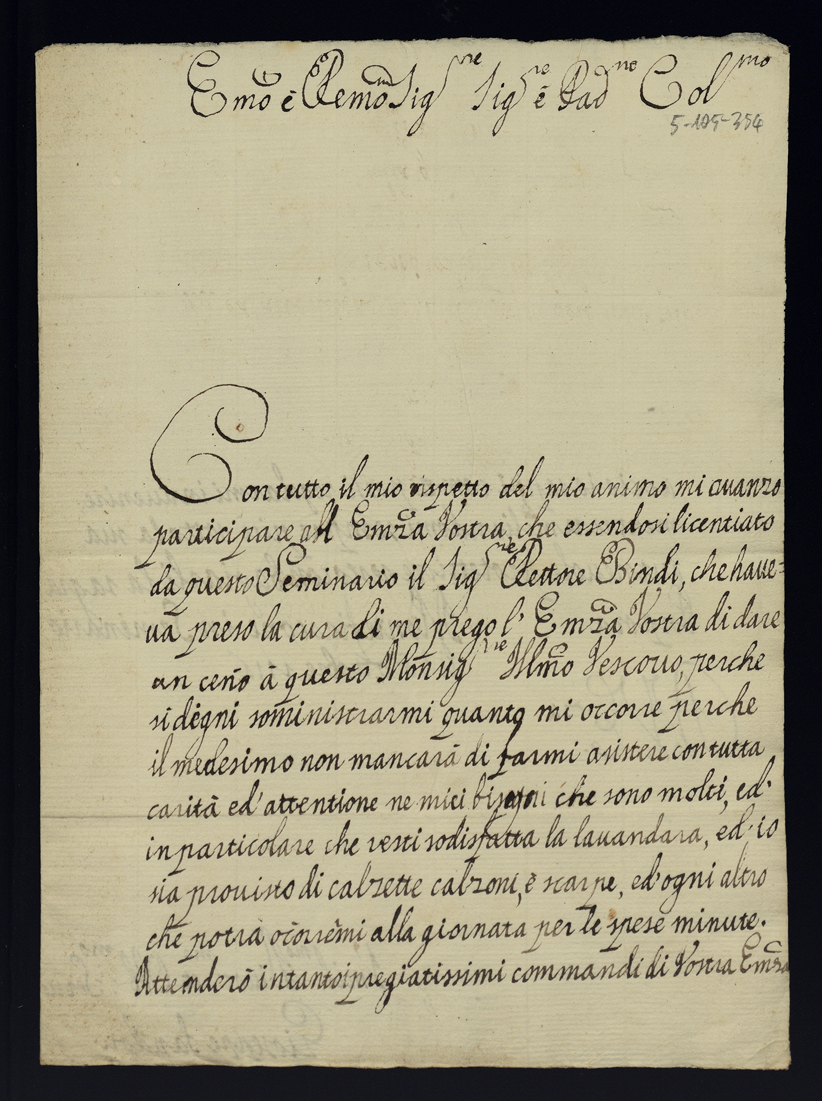 Emo è Remo Sig.re Sig.re è Pad.ne Col.mo
5-105-354
Con tutto il mio rispetto del mio animo mi auanzo
participare all Emza Vostra, che essendosi licentiato
da questo Seminario il Sig.re Rettore Bindi, che haue=
ua preso la cura di me prego l' Emza Vostra di dare
un ceño à questo Monsig.re Illmo Vescouo, perche
si degni soministrarmi quanto mi occorre perche
il medesimo non mancarà di farmi asistere con tutta
carità ed' attentione ne miei bisogni che sono molti, ed'
in particolare che resti sodisfatta la lauandara, ed' io
sia prouisto di calzette calzoni, è scarpe, ed' ogni altro
che potrà ocorermi alla giornata per le spese minute.
Attenderò intanto i pregiatissimi commandi di Vostra Emza